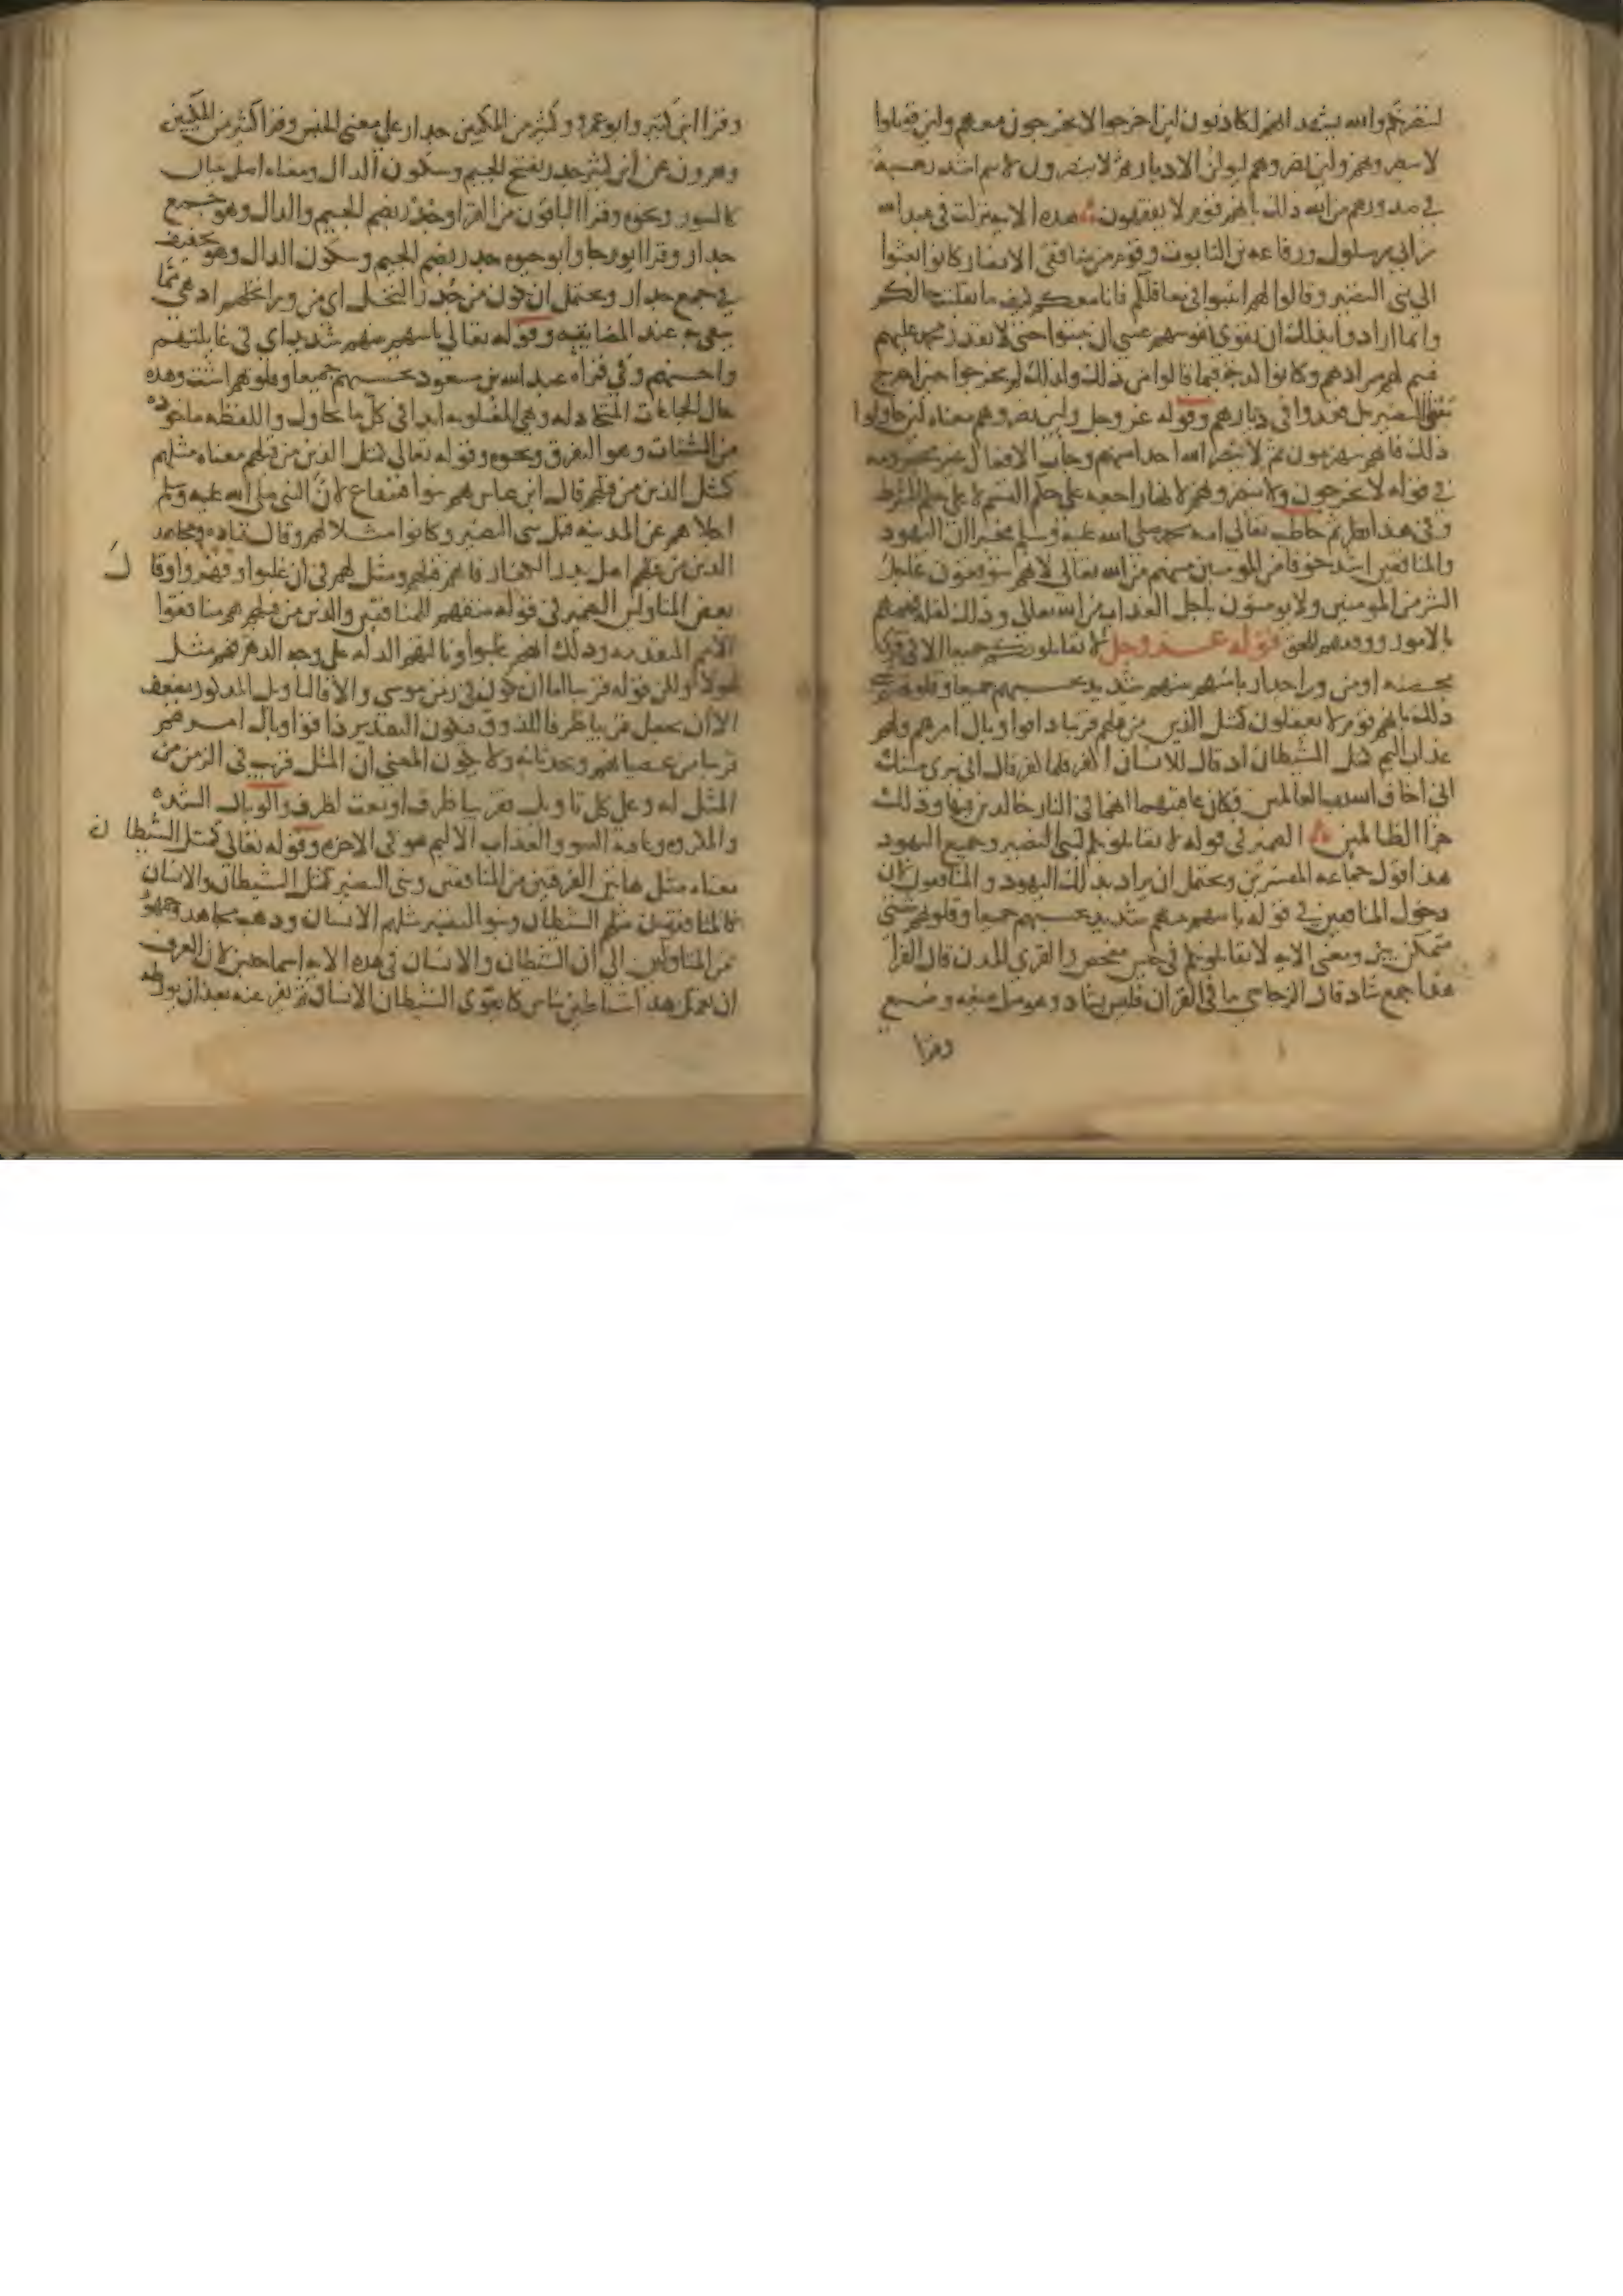 لننصرنكم والله يشهد انهم لكاذبون لين اخرجوا لا يخرجون معهم ولين قوتلوا
لا ينصرونهم ولين نصروهم ليولن الادبار ثم لا ينصرون لانتم اشد رهبة
في صدورهم من الله ذلك بانهم قوم لا يفقهون هذه الاية نزلت في عبد الله
بن ابي بن سلول ورفاعة بن التابوت وقوم من منافقي الانصار كانوا بعثوا
الى بني النضير وقالوا لهم اثبتوا في معاقلكم فانا معكم كيف ما تقلبت حالكم
وانما ارادوا بذلك ان تقوى نفوسهم عسى ان يثبتوا حتى لا يقدر محمد عليهم
فيتم لهم مرادهم وكانوا كذبة فيما قالوا من ذلك ولذلك لم يخرجوا حين اخرج
بنو النضير بل قعدوا في ديارهم وقوله عز وجل ولين نصروهم معناه لين حاولوا
ذلك فانهم ينهزمون ثم لا ينصر الله احدا منهم وجات الافعال غير مجزومة
في قوله لا يخرجون ولا ينصرونهم لانها راجعة على حكم القسم لا على حكم الشرط
وفي هذا نظر ثم خاطب تعالى امة محمد صلى الله عليه وسلم مخبرا ان اليهود
والمنافقين اشد خوفا من المومنين منهم من الله تعالى لانهم يتوقعون عاجل
الشر من المومنين ولا يومنون باجل العذاب من الله تعالى وذلك لقلة فهمهم
بالامور وفهمهم للحق قوله عز وجل لا يقاتلونكم جميعا الا في قرى
محصنة او من ورا جدار باسهم بينهم شديد تحسبهم جميعا وقلوبهم شتى
ذلك بانهم قوم لا يعقلون كمثل الذين من قبلهم قريبا ذاقوا وبال امرهم ولهم
عذاب اليم كمثل الشيطان اذ قال للانسان اكفر فلما كفر قال اني بري منك
اني اخاف الله رب العالمين فكان عاقبتهما انهما في النار خالدين فيها وذلك
جزا الظالمين الضمير في قوله لا يقاتلونكم لبني النضير وجميع اليهود
هذا قول جماعة المفسرين ويحتمل ان يراد بذلك اليهود والمنافقون لان
دخول المنافقين في قوله باسهم بينهم شديد تحسبهم جميعا وقلوبهم شتى
متمكن بين ومعنى الاية لا يقاتلونكم في جيش مفحص والقرى المدن قال الفرا
هذا جمع شاذ قال الزجاج ما في القران فليس بشاذ وهو مثل ضيعة وضيع
وقرا
وقرا ابن كثير وابو عمرو وكثير من المكيين جدار على معنى الجنس وقرا كثير من المكيين
وهرون عن ابن كثير جدر بفتح الجيم وسكون الدال ومعناه اصل بنيان
كالسور ونحوه وقرا الباقون من القرا وجدر بضم الجيم والدال وهو جمع
جدار وقرا ابو رجا وابو حيوة جدر بضم الجيم وسكون الدال وهو تخفيف
في جمع جدار ويحتمل ان يكون من جدر النخل اي من ورا نخلهم اذ هي مما
يتقى به عند المضايقة وقوله تعالى باسهم بينهم شديد اي في غايلتهم
واحنهم وفي قراة عبد الله بن مسعود تحسبهم جميعا وقلوبهم اشت وهذه
حال الجماعات المتخاذلة وهي المغلوبة ابدا في كل ما يحاول واللفظة ماخوذة
من الشتات وهو التفرق ونحوه وقوله تعالى كمثل الذين من قبلهم معناه مثلهم
كمثل الذين من قبلهم قال ابن عباس هم بنوا قينقاع لان النبي صلى الله عليه وسلم
اجلاهم عن المدينة قبل بني النضير وكانوا مثلا لهم وقال قتادة ومجاهد
الذين من قبلهم اهل بدر الكفار فانهم قبلهم ومثل لهم في ان غلبوا وقهروا وقال
بعض المتاولين الضمير في قوله من قبلهم للمنافقين والذين من قبلهم هم منافقوا
الامم المتقدمة وذلك انهم غلبوا ونالتهم الذلة على وجه الدهر فهم مثل
لهولا ولكن قوله قريبا اما ان يكون في زمن موسى والا فالتاويل المذكور يضعف
الا ان يجعل قريبا ظرفا للذوق فيكون التقدير ذاقوا وبال امرهم
قريبا من عصيانهم وحدثانه ولا يكون المعنى ان المثل قريب في الزمن من
المثل له وعلى كل تاويل فقريبا ظرف او نعت لظرف والوبال الشدة
والمكروه وعاقبة السو والعذاب الاليم هو في الاخرة وقوله تعالى كمثل الشيطان
معناه مثل هاتين الفرقتين من المنافقين وبني النضير كمثل الشيطان والانسان
فالمنافقون مثلهم الشيطان وبنو النضير مثلهم الانسان وذهب مجاهد وجمهور
من المتاولين الى ان الشيطان والانسان في هذه الاية اسما جنس لان العرف
ان يعمل هذا شياطين بناس كما يغوى الشيطان الانسان ثم يفر عنه بعد ان يورطه